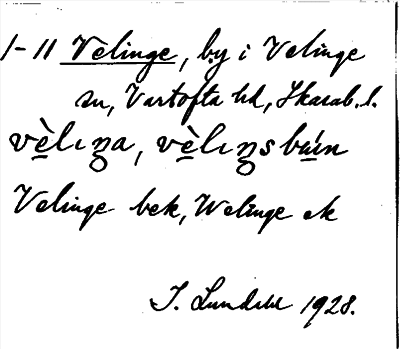 1-11 Vèlinge, by i Velinge
sn, Vartofta hd, Skarab. l.
vè̲lıŋa, vè̲lıŋsbú̲ın
Velinge bek, Welinge ek
J. Lundahl 1928.